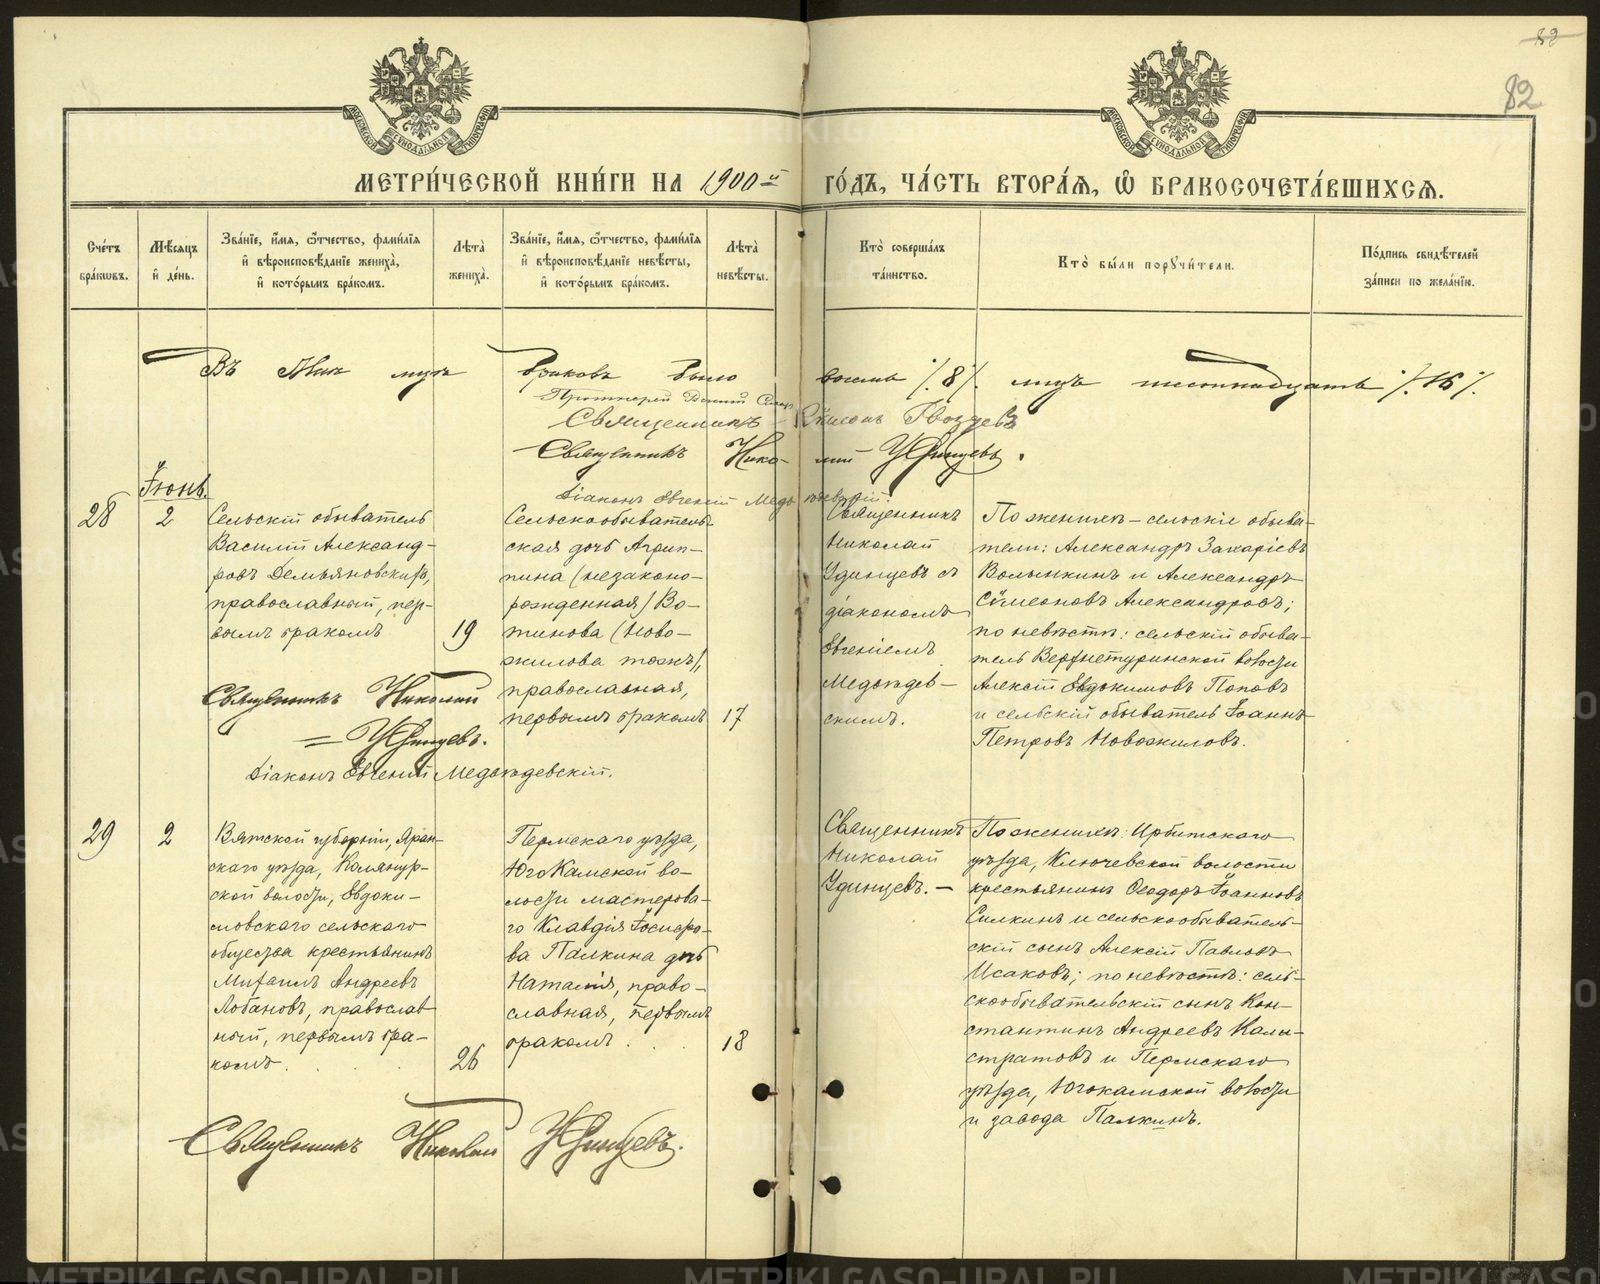 82
82
МЕТРИ́ЧЕСКОЙ КНИ́ГИ НА 1900й ГО́ДЪ, ЧА́СТЬ ВТОРА́Я, Ѡ БРАКОСОЧЕТА́ВШИХСЯ.
Сче́тъ бра́ковъ.
Мѣ́сяцъ и де́нь.
Зва́нїе, и́мя, ѻ́тчество, фами́лїя и вѣроисповѣ́данїе жениха̀, и кото́рымъ бра́комъ.
Лѣта̀ жениха̀.
Зва́нїе, и́мя, ѻ́тчество, фами́лїя и вѣроисповѣ́данїе невѣ́сты, и кото́рымъ бра́комъ.
Лѣта̀ невѣ́сты.
Кто̀ соверша́лъ та́инство.
Кто̀ бы́ли пору́чители.
По́дпись свидѣ́телей за́писи по жела́нїю.
Въ Маѣ мц҃ѣ браковъ было восемь /. 8 /. лицъ шестнадцать /. 16 /.
Протоіерей
Священникъ Сѵмеонъ Гвоздевъ
Священникъ Николай Удинцевъ.
Діаконъ Евгеній Медвѣдевскій.
Іюнь.
28
2
Сельскій обыватель
Василій Александ-
ровъ Демьяновскихъ,
православный, пер-
вымъ бракомъ
19
Сельскообыватель-
ская дочь Агрип-
пина (незаконо-
рожденная) Во-
тинова (Ново-
жилова тожъ),
православная,
первымъ бракомъ
17
Священникъ
Николай
Удинцевъ съ
діакономъ
Евгеніемъ
Медвѣдев-
скимъ.
По женихѣ – сельскіе обыва-
тели: Александръ Захаріевъ
Волынкинъ и Александръ
Сѵмеоновъ Александровъ;
по невѣстѣ: сельскій обыва-
тель Верхнетуринской волости
Алексій Евдокимовъ Поповъ
и сельскій обыватель Іоаннъ
Петровъ Новожиловъ.
Священникъ Николай
Удинцевъ.
Діаконъ Евгеній Медвѣдевскій.
29
2
Вятской губерніи, Яран-
скаго уѣзда, Колянур-
ской волости, Евдоки-
мовскаго сельскаго
общества крестьянинъ
Михаилъ Андреевъ
Лобановъ, православ-
ный, первымъ бра-
комъ.
26
Пермскаго уѣзда,
Юго Камской во-
лости мастерова-
го Клавдія
ва Палкина дочь
Наталія, право-
славная, первымъ
бракомъ.
18
Священникъ
Николай
Удинцевъ. –
По женихѣ: Ирбитскаго
уѣзда, Ключевской волости
крестьянинъ Ѳеодоръ Іоанновъ
Силкинъ и сельскообыватель-
скій сынъ Алексій Павловъ
Исаковъ; по невѣстѣ: сель-
скообывательскій сынъ Кон-
стантинъ Андреевъ Калы-
стратовъ и Пермскаго
уѣзда, Югокамской волости
и завода Палкинъ.
Священникъ Николай Удинцевъ.
METRIKI.GASO-URAL.RU